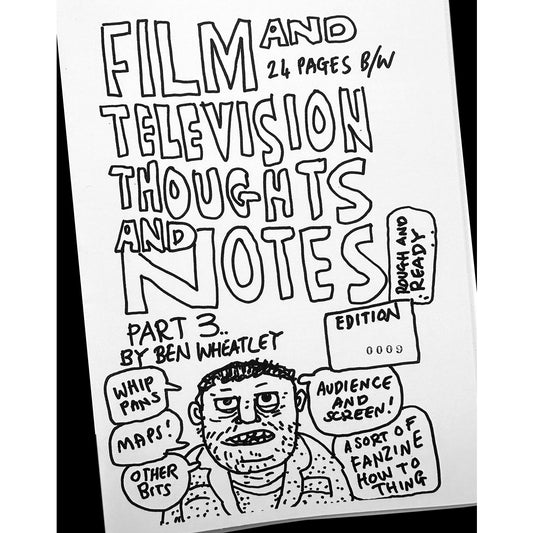 FILM AND
24 PAGES B/W
TELEVISION
THOUGHTS
AND NOTES
ROUGH AND
READY
PART 3..
BY BEN WHEATLEY
EDITION
0009
WHIP
PANS
MAPS!
OTHER
BITS
AUDIENCE
AND
SCREEN!
A SORT OF
FANZINE
HOW TO
THING